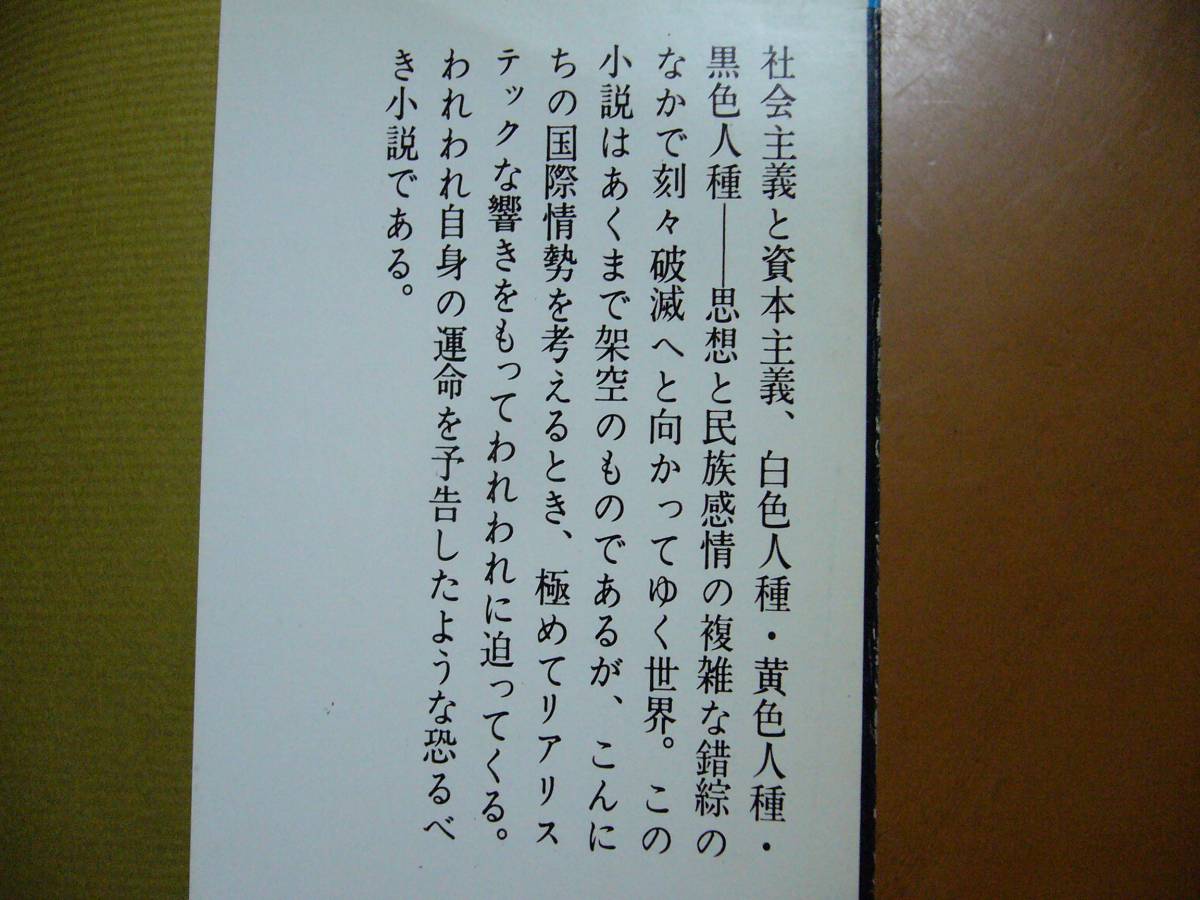 社会主義と資本主義、白色人種・黄色人種・
黒色人種――思想と民族感情の複雑な錯綜の
なかで刻々破滅へと向かってゆく世界。この
小説はあくまで架空のものであるが、こんに
ちの国際情勢を考えるとき、極めてリアリス
テックな響きをもってわれわれに迫ってくる。
われわれ自身の運命を予告したような恐るべ
き小説である。